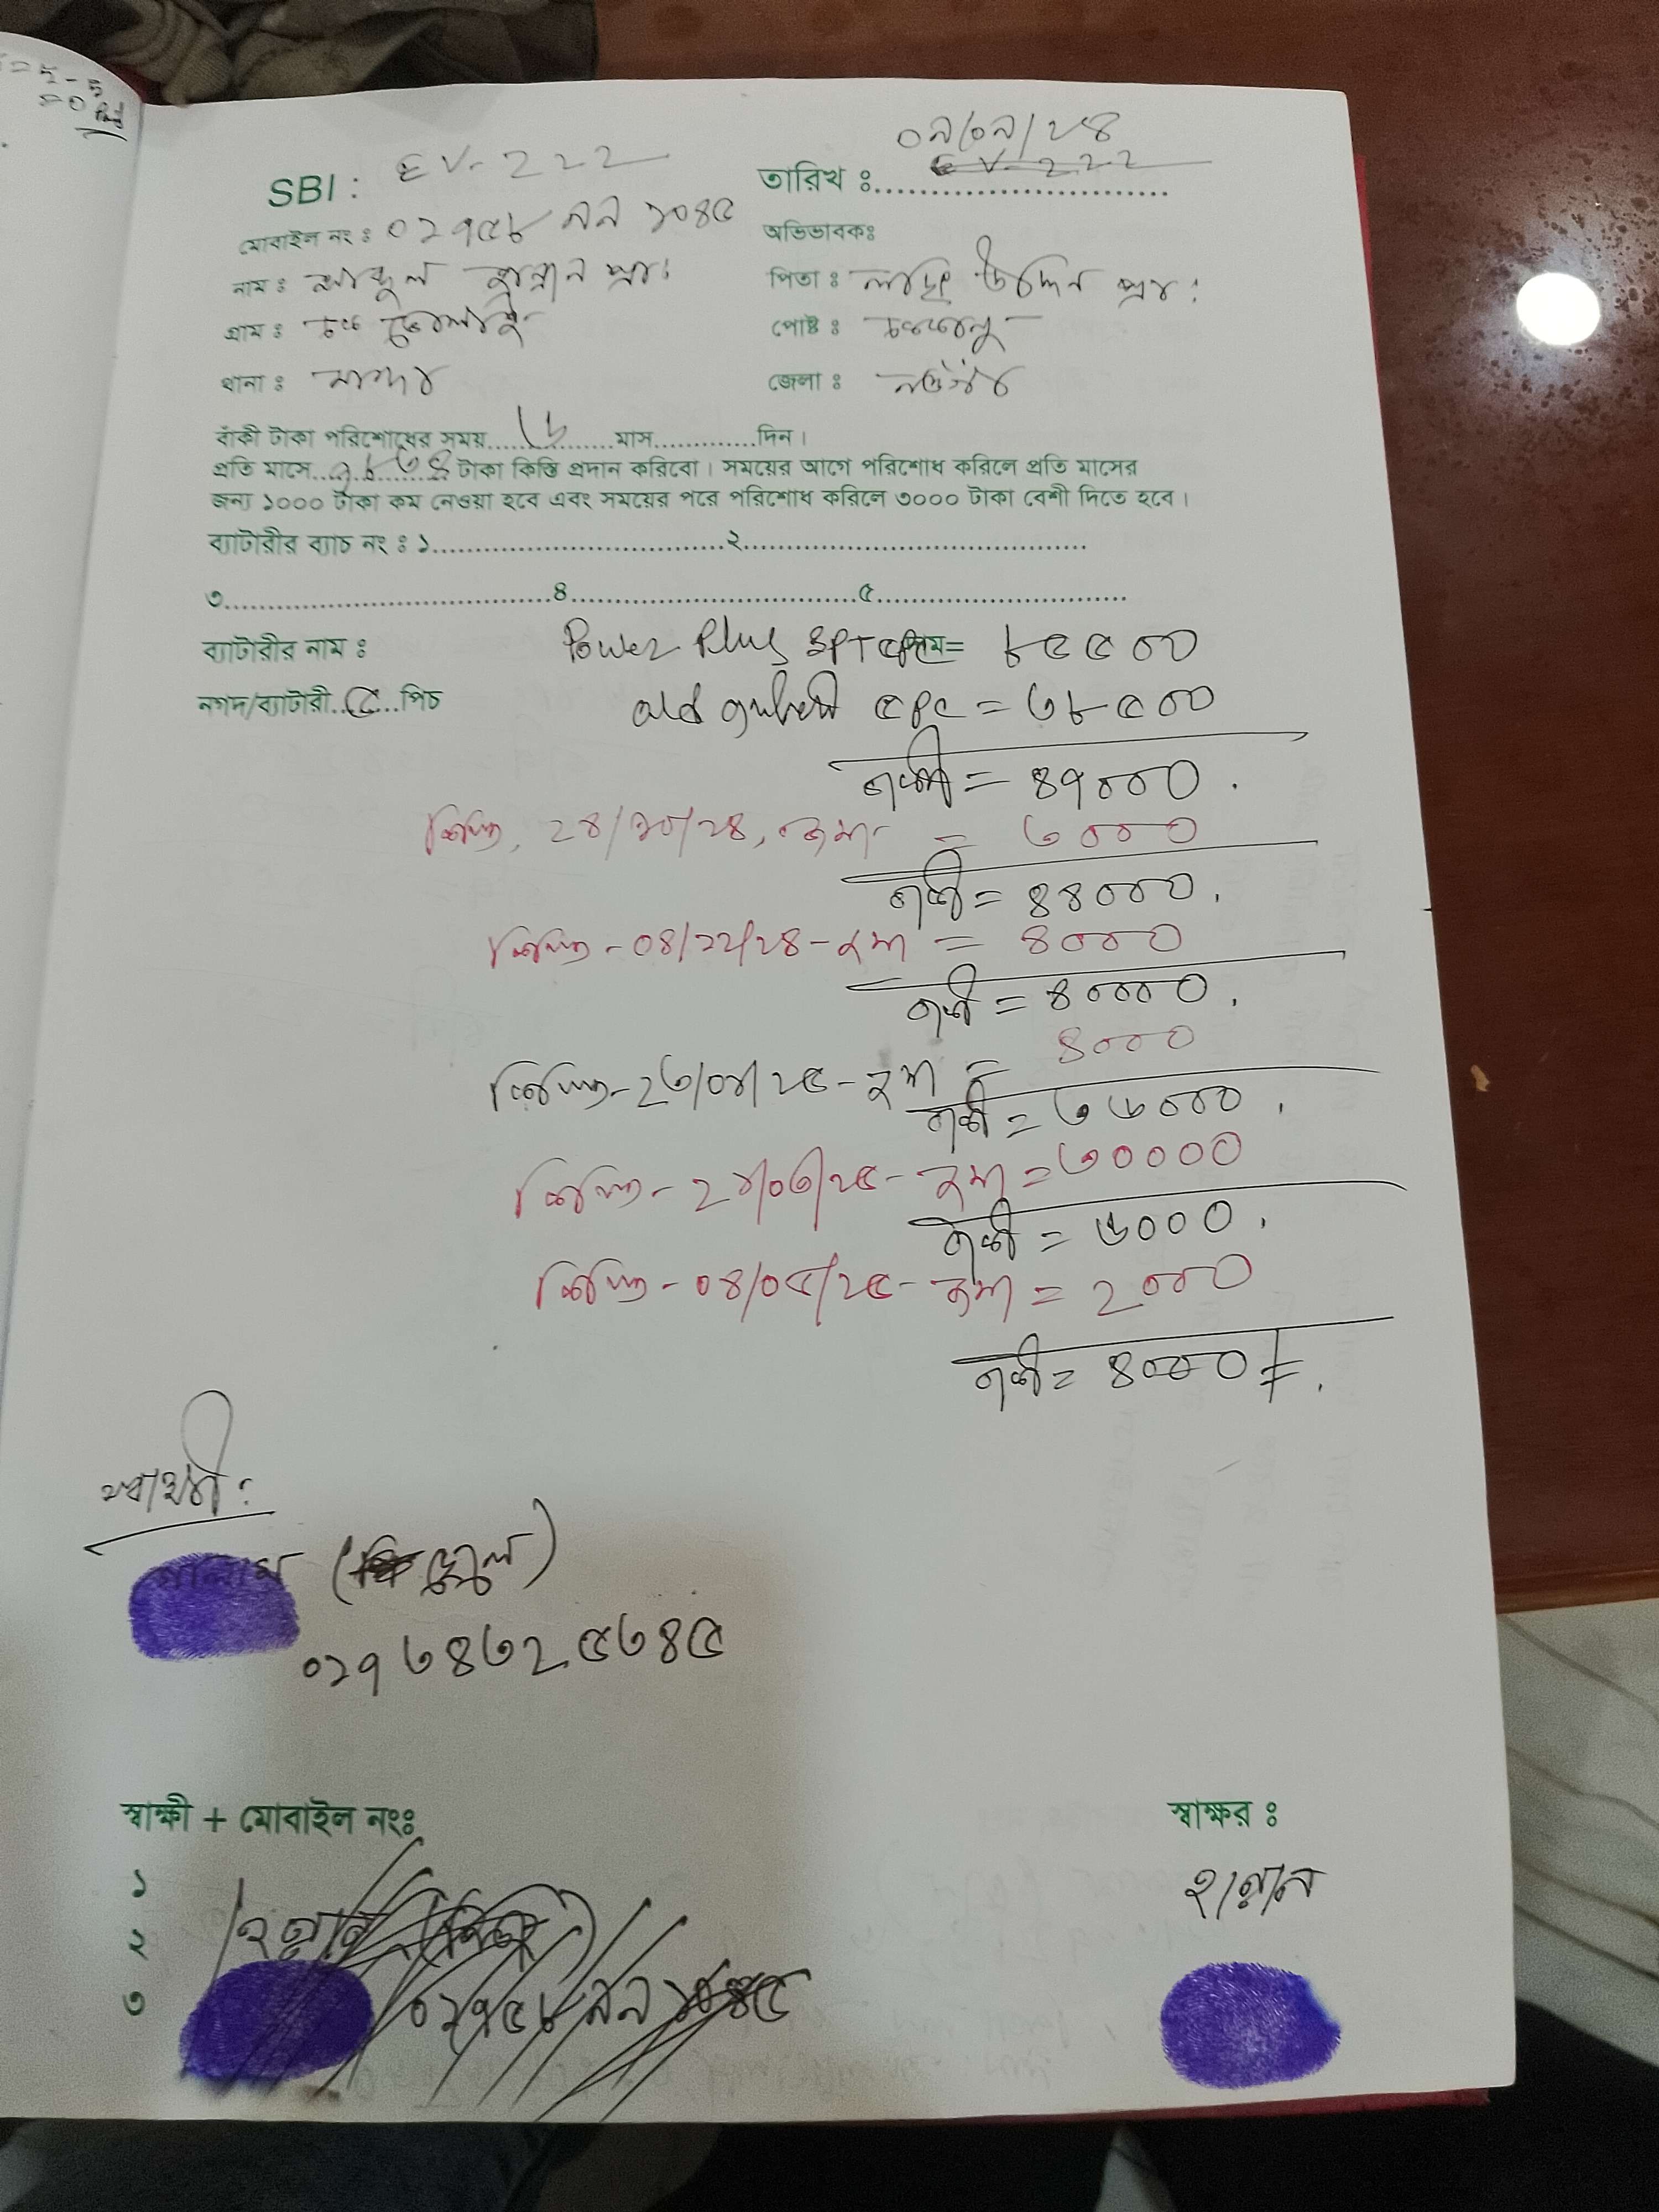 ০৯/০৯/২৪
SBI : EV-222 তারিখ ঃ EV-222
মোবাইল নং ঃ ০১৭৫৮ ৯৯ ১০৪৫ অভিভাবকঃ
নাম ঃ হান্নান প্রাং পিতা ঃ উদ্দিন প্রাং
গ্রাম ঃ পোষ্ট ঃ
থানা ঃ মান্দা জেলা ঃ নওগাঁ
বাঁকী টাকা পরিশোধের সময়....৬....মাস............দিন।
প্রতি মাসে..৭৮৩৪ টাকা কিস্তি প্রদান করিবো। সময়ের আগে পরিশোধ করিলে প্রতি মাসের
জন্য ১০০০ টাকা কম নেওয়া হবে এবং সময়ের পরে পরিশোধ করিলে ৩০০০ টাকা বেশী দিতে হবে।
ব্যাটারীর ব্যাচ নং ঃ ১..............................২...................................
৩.................................৪..............................৫.........................
ব্যাটারীর নাম ঃ Power Plus ৫PC দাম= ৮৫৫০০
নগদ/ব্যাটারী..৫...পিচ old ৫PC = ৩৮৫০০
বাকী = ৪৭০০০
কিস্তি, ২৪/১০/২৪, জমা = ৩০০০
বাকী = ৪৪০০০
কিস্তি - ০৪/১২/২৪ - জমা = ৪০০০
বাকী = ৪০০০০
৪০০০
কিস্তি - ২৩/০১/২৫ - জমা =
বাকী = ৩৬০০০
কিস্তি - ২১/০৩/২৫ - জমা = ৩০০০০
বাকী = ৬০০০
কিস্তি - ০৪/০৫/২৫ - জমা = ২০০০
বাকী = ৪০০০
স্বাক্ষী:
০১৭৩৪৩২৫৩৪৫
স্বাক্ষী + মোবাইল নংঃ স্বাক্ষর ঃ
১ হান্নান
২ হান্নান (নিজ)
৩ ০১৭৫৮ ৯৯ ১০৪৫